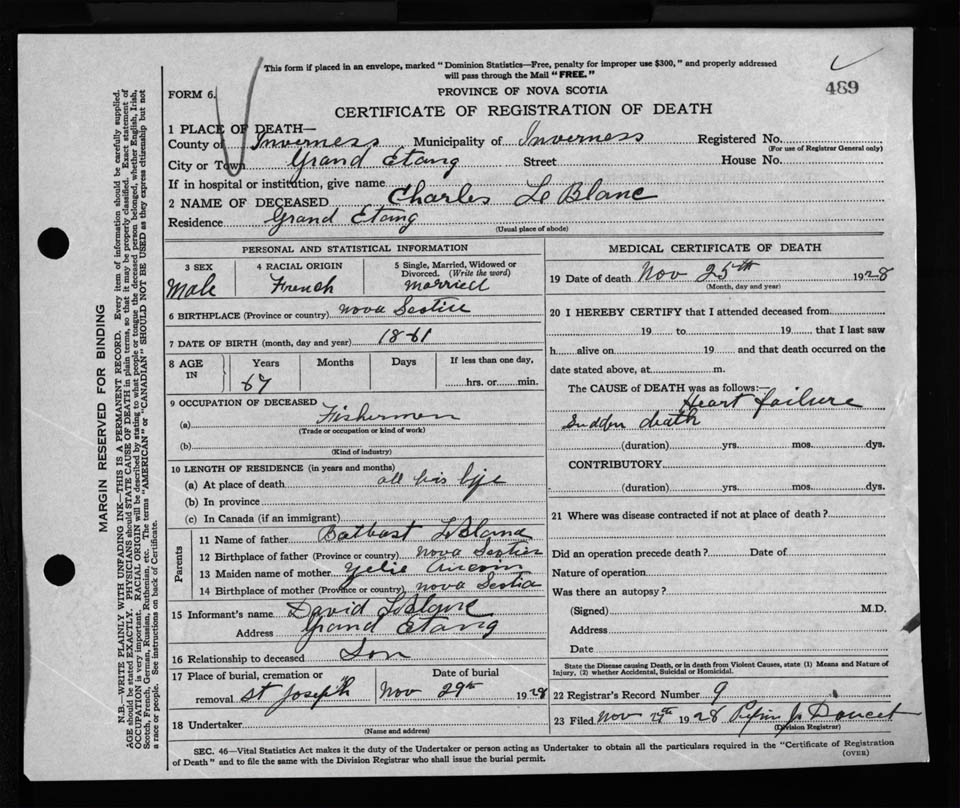 This form if placed in an envelope, marked "Dominion Statistics—Free, penalty for improper use $300," and properly addressed
will pass through the Mail "FREE."
FORM 6.
PROVINCE OF NOVA SCOTIA
489
CERTIFICATE OF REGISTRATION OF DEATH
1 PLACE OF DEATH—
County of Inverness Municipality of Inverness Registered No.
(For use of Registrar General only)
City or Town Grand Etang Street House No.
If in hospital or institution, give name
2 NAME OF DECEASED Charles Le Blanc
Residence Grand Etang
(Usual place of abode)
PERSONAL AND STATISTICAL INFORMATION
3 SEX 4 RACIAL ORIGIN 5 Single, Married, Widowed or
Divorced. (Write the word)
Male French Married
6 BIRTHPLACE (Province or country) Nova Scotia
7 DATE OF BIRTH (month, day and year) 1861
8 AGE IN Years Months Days If less than one day,
67 hrs. or min.
9 OCCUPATION OF DECEASED
(a) Fisherman
(Trade or occupation or kind of work)
(b)
(Kind of industry)
10 LENGTH OF RESIDENCE (in years and months)
(a) At place of death all his life
(b) In province
(c) In Canada (if an immigrant)
Parents
11 Name of father
12 Birthplace of father (Province or country) Nova Scotia
13 Maiden name of mother
14 Birthplace of mother (Province or country) nova Scotia
15 Informant's name David LeBlanc
Address Grand Etang
16 Relationship to deceased Son
17 Place of burial, cremation or Date of burial
removal St Joseph Nov 29th 1928
18 Undertaker
(Name and address)
MEDICAL CERTIFICATE OF DEATH
19 Date of death Nov 25th 1928
(Month, day and year)
20 I HEREBY CERTIFY that I attended deceased from
19 to 19 that I last saw
h alive on 19 and that death occurred on the
date stated above, at m.
The CAUSE of DEATH was as follows:—
Heart failure
Sudden death
(duration) yrs. mos. dys.
CONTRIBUTORY
(duration) yrs. mos. dys.
21 Where was disease contracted if not at place of death?
Did an operation precede death? Date of
Nature of operation
Was there an autopsy?
(Signed) M.D.
Address
Date
State the Disease causing Death, or in death from Violent Causes, state (1) Means and Nature of
Injury, (2) whether Accidental, Suicidal or Homicidal.
22 Registrar's Record Number 9
23 Filed Nov 1928 Doucet
(Division Registrar)
SEC. 46—Vital Statistics Act makes it the duty of the Undertaker or person acting as Undertaker to obtain all the particulars required in the "Certificate of Registration
of Death" and to file the same with the Division Registrar who shall issue the burial permit.
(OVER)
MARGIN RESERVED FOR BINDING
N.B.—WRITE PLAINLY WITH UNFADING INK—THIS IS A PERMANENT RECORD. Every item of information should be carefully supplied.
AGE should be stated EXACTLY. PHYSICIANS should STATE CAUSE OF DEATH in plain terms, so that it may be properly classified. Exact statement of
OCCUPATION is very important. RACIAL ORIGIN will be described by stating to what people or tongue the deceased person belonged, whether English, Irish,
Scotch, French, German, Russian, Ruthenian, etc. The terms "AMERICAN" or "CANADIAN" SHOULD NOT BE USED as they express citizenship but not
a race or people. See instructions on back of Certificate.